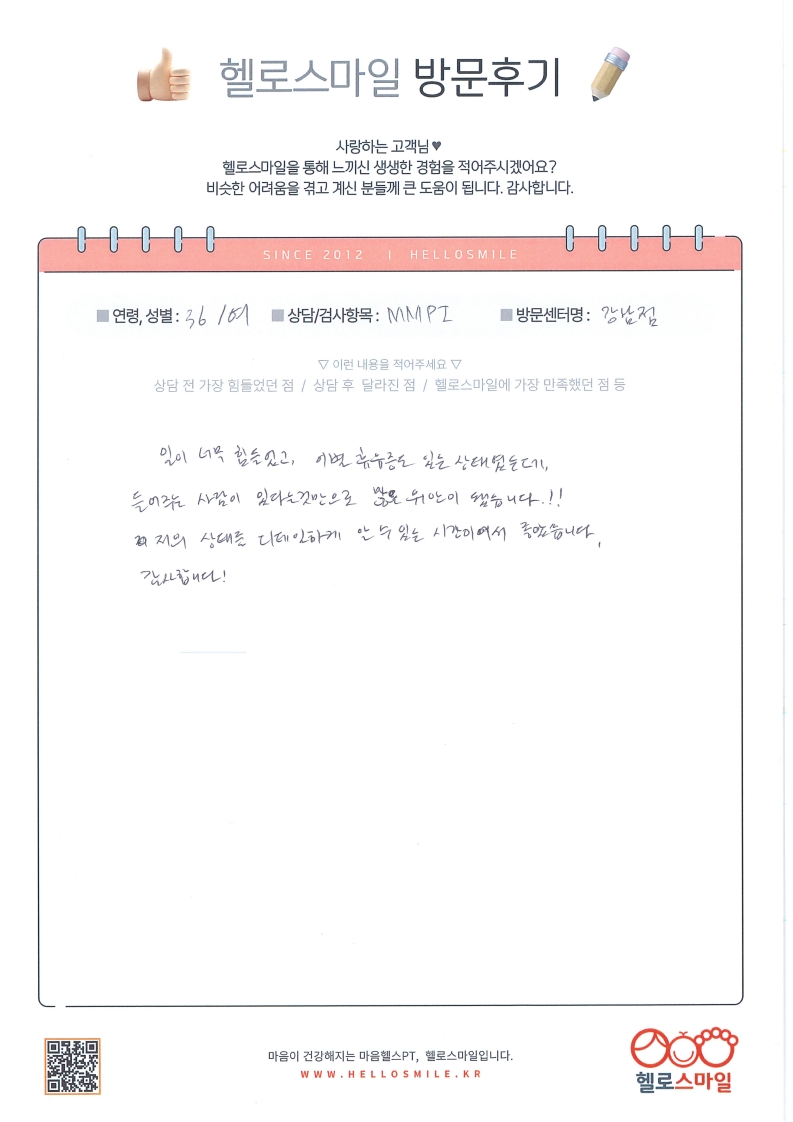 헬로스마일 방문후기
사랑하는 고객님♥
헬로스마일을 통해 느끼신 생생한 경험을 적어주시겠어요?
비슷한 어려움을 겪고 계신 분들께 큰 도움이 됩니다. 감사합니다.
SINCE 2012 | HELLOSMILE
■ 연령, 성별 : 36 /여 ■ 상담/검사항목 : MMPI ■ 방문센터명 : 강남점
▽ 이런 내용을 적어주세요 ▽
상담 전 가장 힘들었던 점 / 상담 후 달라진 점 / 헬로스마일에 가장 만족했던 점 등
일이 너무 힘들었고, 이별 후유증도 있는 상태였는데,
들어주는 사람이 있다는것만으로 많은 위안이 됐습니다.!!
저의 상태를 디테일하게 안 수 있는 시간이여서 좋았습니다,
감사합니다!
마음이 건강해지는 마음헬스PT, 헬로스마일입니다.
WWW.HELLOSMILE.KR
헬로스마일